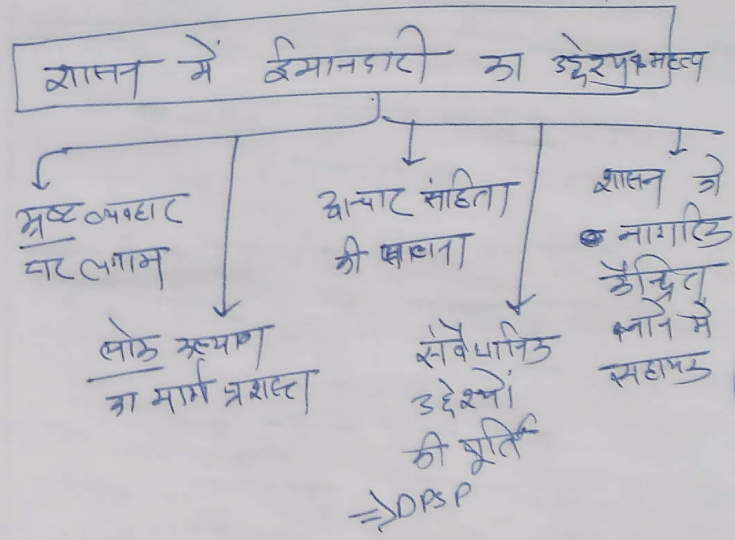 शासन में ईमानदारी का उद्देश्य व महत्व
भ्रष्ट व्यवहार
पर लगाम
लोक कल्याण
का मार्ग प्रशस्त
आचार संहिता
की पालना
संवैधानिक
उद्देश्यों
की पूर्ति
=> DPSP
शासन को
नागरिक
केन्द्रित
बनाने में
सहायक